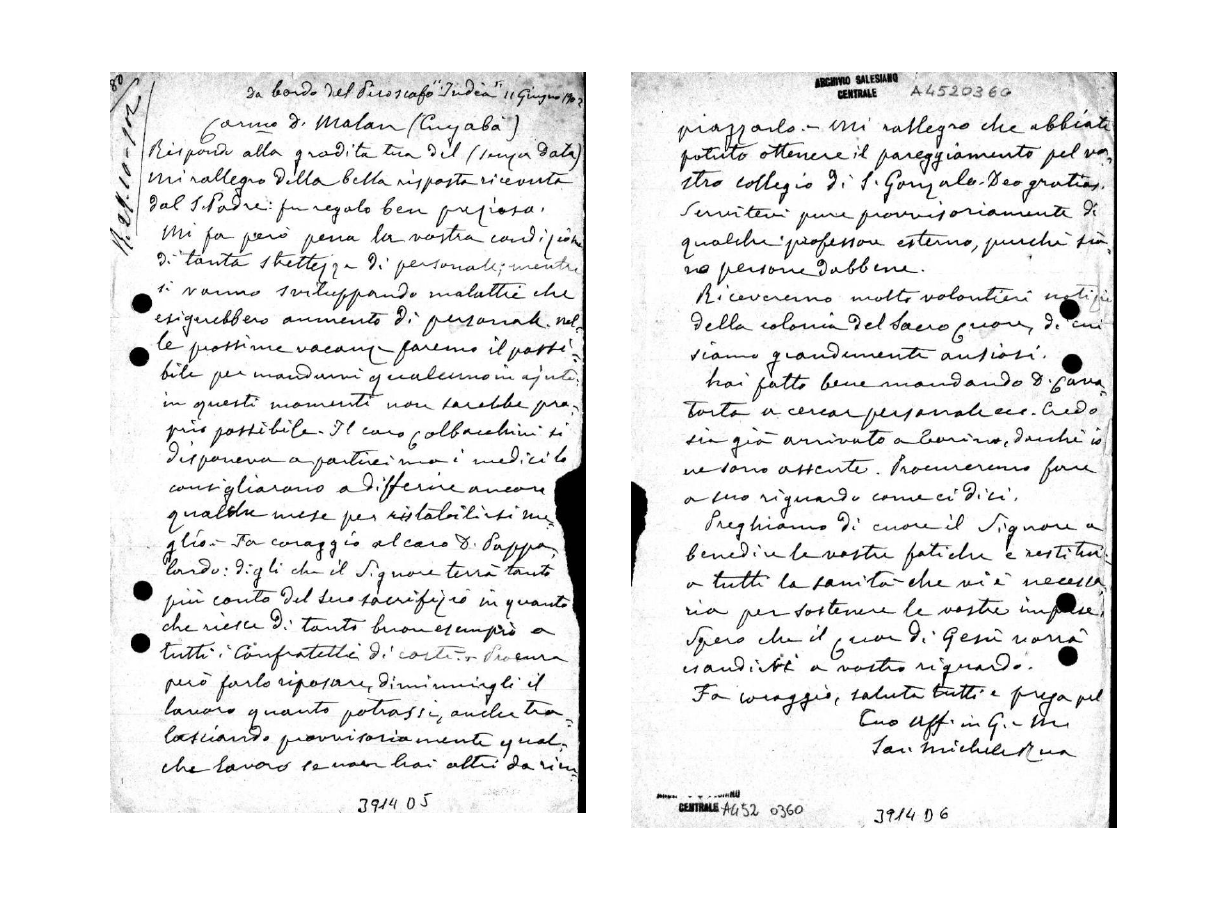 80
R. 21-10-902
da bordo del Piroscafo "India" 11 Giugno 1902
Carmo D. Malan (Cuyabà)
Rispondo alla gradita tua del (senza data)
Mi rallegro della bella risposta ricevuta
dal S. Padre: fu regalo ben prezioso.
Mi fa però pena la vostra condizione
di tanta strettezza di personale; mentre
si vanno sviluppando malattie che
esigerebbero aumento di personale. Nel-
le prossime vacanze faremo il possi-
bile per mandarvi qualcuno in ajuto:
in questi momenti non sarebbe pro-
prio possibile. Il caro Colbacchini si
disponeva a partire; ma i medici lo
consigliarono a differire ancora
qualche mese per ristabilirsi me-
glio. - Fa coraggio al caro D. Pappa-
lardo: digli che il Signore terrà tanto
più conto del suo sacrifizio in quanto
che riesce di tanto buon esempio a
tutti i Confratelli di costì. - Procura
però farlo riposare, diminuirgli il
lavoro quanto potrassi, anche tra-
lasciando provvisoriamente qual-
che lavoro se non hai altri da rim-
3914 D5
ARCHIVIO SALESIANO
CENTRALE
A4520360
piazzarlo. - Mi rallegro che abbiate
potuto ottenere il pareggiamento pel vo-
stro collegio di S. Gonzalo. Deo gratias.
Servitevi pure provvisoriamente di
qualche professore esterno, purchè sia-
no persone dabbene.
Riceveremo molto volontieri notizie
della colonia del Sacro Cuore, di cui
siamo grandemente ansiosi.
Hai fatto bene mandando D. Cava-
torta a cercar personale ecc. Credo
sia già arrivato a Torino, dacchè io
ne sono assente. Procureremo fare
a suo riguardo come ci dici.
Preghiamo di cuore il Signore a
benedire le vostre fatiche e restituir
a tutti la sanità che vi è necessa-
ria per sostenere le vostre imprese.
Spero che il Cuor di Gesù vorrà
esaudirci a vostro riguardo.
Fa coraggio, saluta tutti e prega pel
Tuo aff. in G. e M.
Sac. Michele Rua
CENTRALE A452 0360
3914 D6